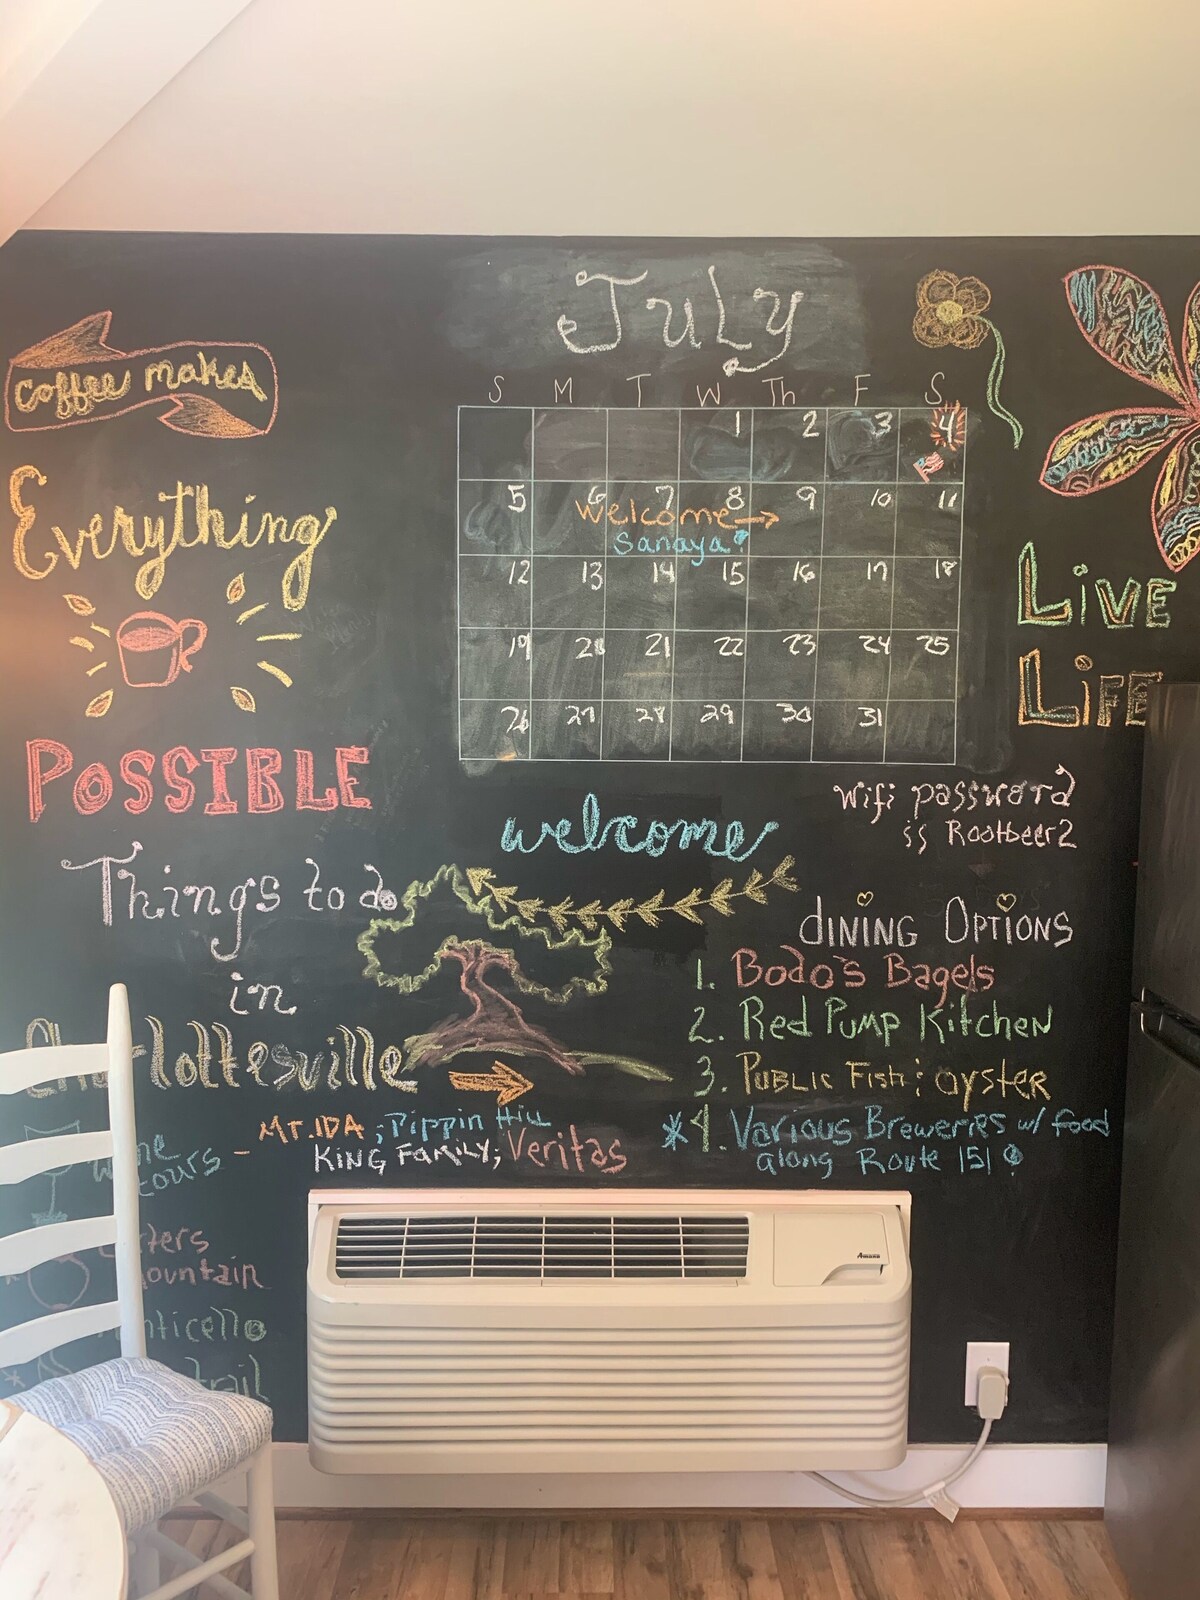 July
S M T W Th F S
1 2 3 4
5 6 7 8 9 10 11
Welcome
Sanaya!
12 13 14 15 16 17 18
19 20 21 22 23 24 25
26 27 28 29 30 31
coffee makes
Everything
POSSIBLE
LIVE
LIFE
wifi password
is Rootbeer2
welcome
Things to do
in
Charlottesville
wine
tours -
MT. IDA ; Pippin Hill
KING FAMILY; Veritas
Carters
Mountain
Monticello
* trail
dINING OPTIONS
1. Bodo's Bagels
2. Red Pump Kitchen
3. PUBLIC Fish & oyster
*4. Various Breweries w/ food
along Route 151!
Amana